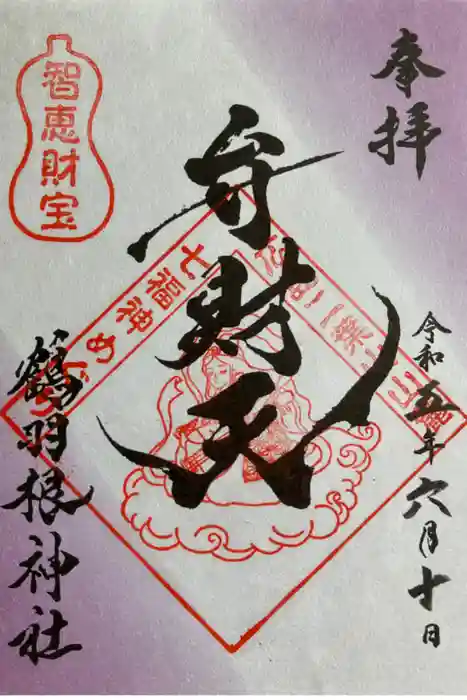 奉拝
令和五年六月十日
弁財天
智恵財宝
七福神め
鶴羽根神社